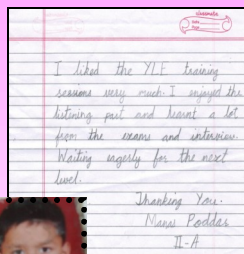 classmate
Date
Page
I liked the YLE training
sessions very much. I enjoyed the
listening part and learnt a lot
from the exams and interview.
Waiting eagerly for the next
level.
Thanking You.
Manas Poddar
II-A